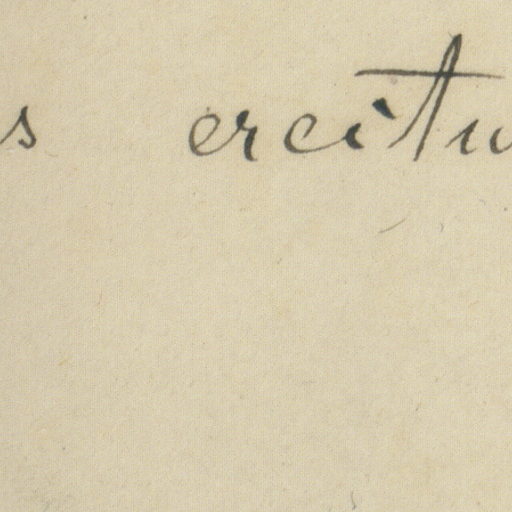 s ercitu